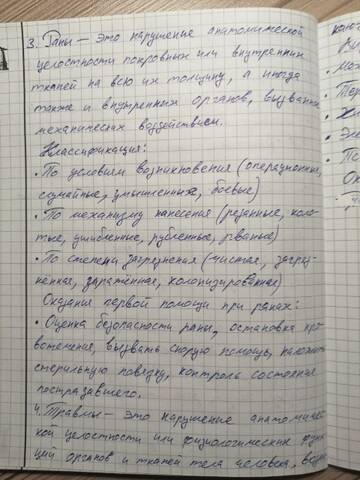 3. Раны — это нарушение анатомической
целостности покровных или внутренних
тканей на всю их толщину, а иногда
также и внутренних органов, вызванные
механическим воздействием.
Классификация:
• По условиям возникновения (операционные,
случайные, умышленные, боевые)
• По механизму нанесения (резанные, коло-
тые, ушибленные, рубленные, рваные)
• По степени загрязнения (чистая, загряз-
ненная, заражённая, колонизированная)
Оказания первой помощи при ранах:
• Оценка безопасности раны, остановка кро-
вотечения, вызвать скорую помощь, наложить
стерильную повязку, контроль состояния
пострадавшего.
4. Травмы — это нарушение анатомичес-
кой целостности или физиологических функ-
ций органов и тканей тела человека,